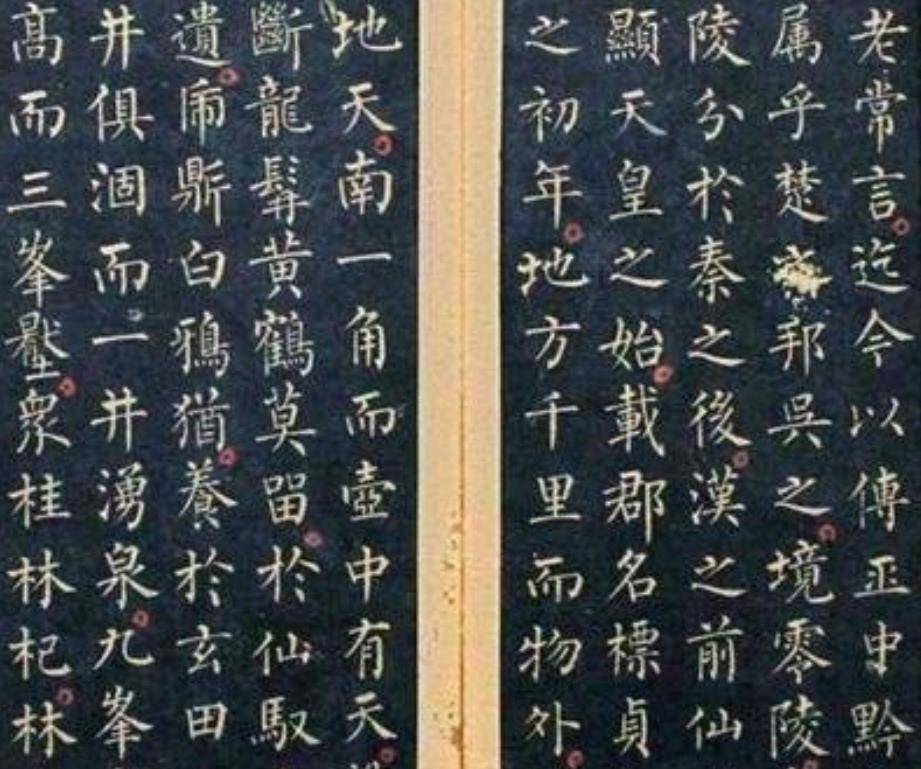 老常言迄今以傳正中黔
属乎楚邦吳之境零陵
陵分於秦之後漢之前仙
顯天皇之始載郡名標貞
之初年地方千里而物外
地天南一角而壺中有天
斷龍髯黄鶴莫留於仙馭
遺鼎白鴉猶養於玄田
井俱涸而一井湧泉九峯
髙而三峯衆桂林杞林